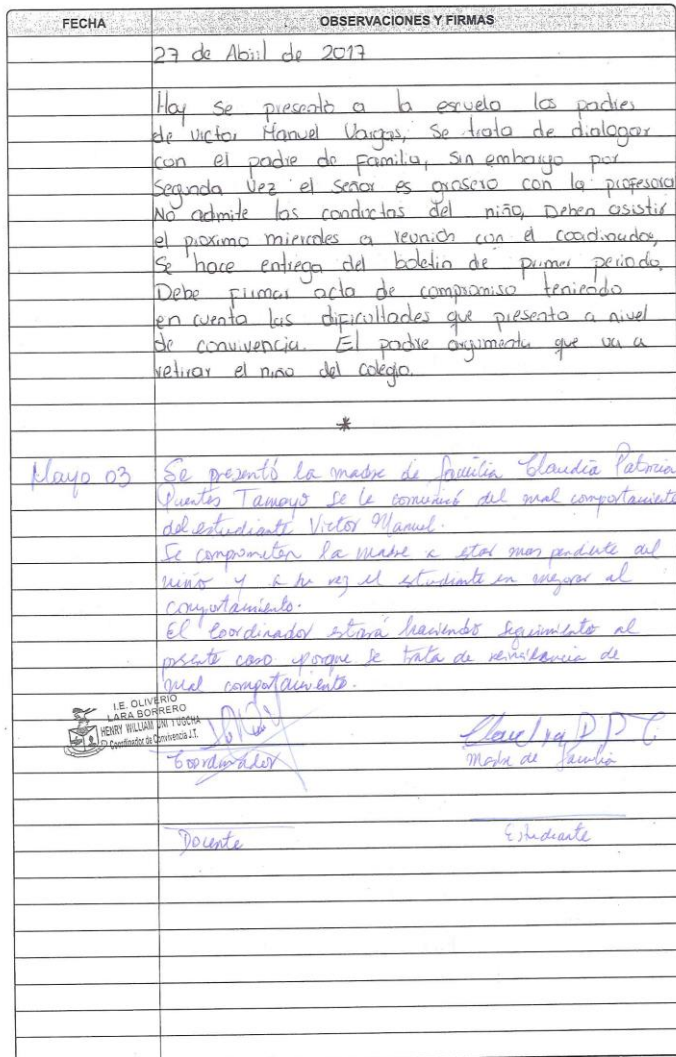 FECHA OBSERVACIONES Y FIRMAS
27 de Abril de 2017
Hoy se presentó a la escuela los padres
de Victor Manuel Vargas, Se trata de dialogar
con el padre de familia, sin embargo por
Segunda Vez el señor es grosero con la profesora
No admite las conductas del niño, Deben asistir
el proximo miercoles a reunion con el coordinador,
Se hace entrega del boletin de primer periodo,
Debe firmar acta de compromiso teniendo
en cuenta las dificultades que presenta a nivel
de convivencia. El padre argumenta que va a
retirar el niño del colegio.
*
Mayo 03 Se presentó la madre de familia Claudia Patricia
Puentes Tamayo se le comunicó del mal comportamiento
del estudiante Victor Manuel.
Se comprometen la madre a estar mas pendiente del
niño y a su vez el estudiante en mejorar el
comportamiento.
El Coordinador estará haciendo seguimiento al
presente caso porque se trata de reincidencia de
mal comportamiento.
I.E. OLIVERIO
LARA BORRERO
HENRY WILLIAM
Coordinador de Convivencia J.T.
Claudia P. P. T
Coordinador Madre de familia
Docente Estudiante